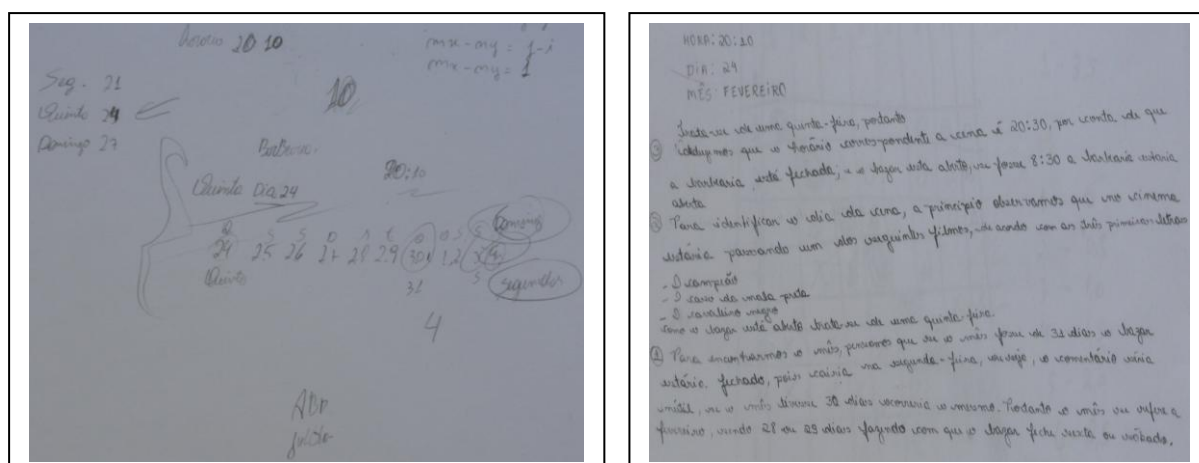 horario 20 10
mx - my = 1
Seg. 21
Quinta 24
Domingo 27
10
Barbearia
20:10
Quinta Dia 24
24 25 26 27 28 29 30 1 2
Quinta
31
segunda
4
HORA: 20:10
DIA: 24
MÊS: FEVEREIRO
Trata-se de uma quinta-feira, portanto
③ que o horário correspondente a cena é 20:30, por conta de que
a barbearia está fechada, e o bazar está aberto, se fosse 8:30 a barbearia estaria
aberta
② Para identificar o dia da cena, a princípio observamos que no cinema
estaria passando um dos seguintes filmes, de acordo com as três primeiras letras
- O campeão
- O caso da mala preta
- O cavaleiro negro
Como o bazar está aberto trata-se de uma quinta-feira.
① Para encontrarmos o mês, pensamos que se o mês fosse de 31 dias o bazar
estaria fechado, pois cairia na segunda-feira, ou seja, o comentário seria
inútil, se o mês tivesse 30 dias ocorreria o mesmo. Portanto o mês se refere a
fevereiro, sendo 28 ou 29 dias fazendo com que o bazar feche sexta ou sábado.